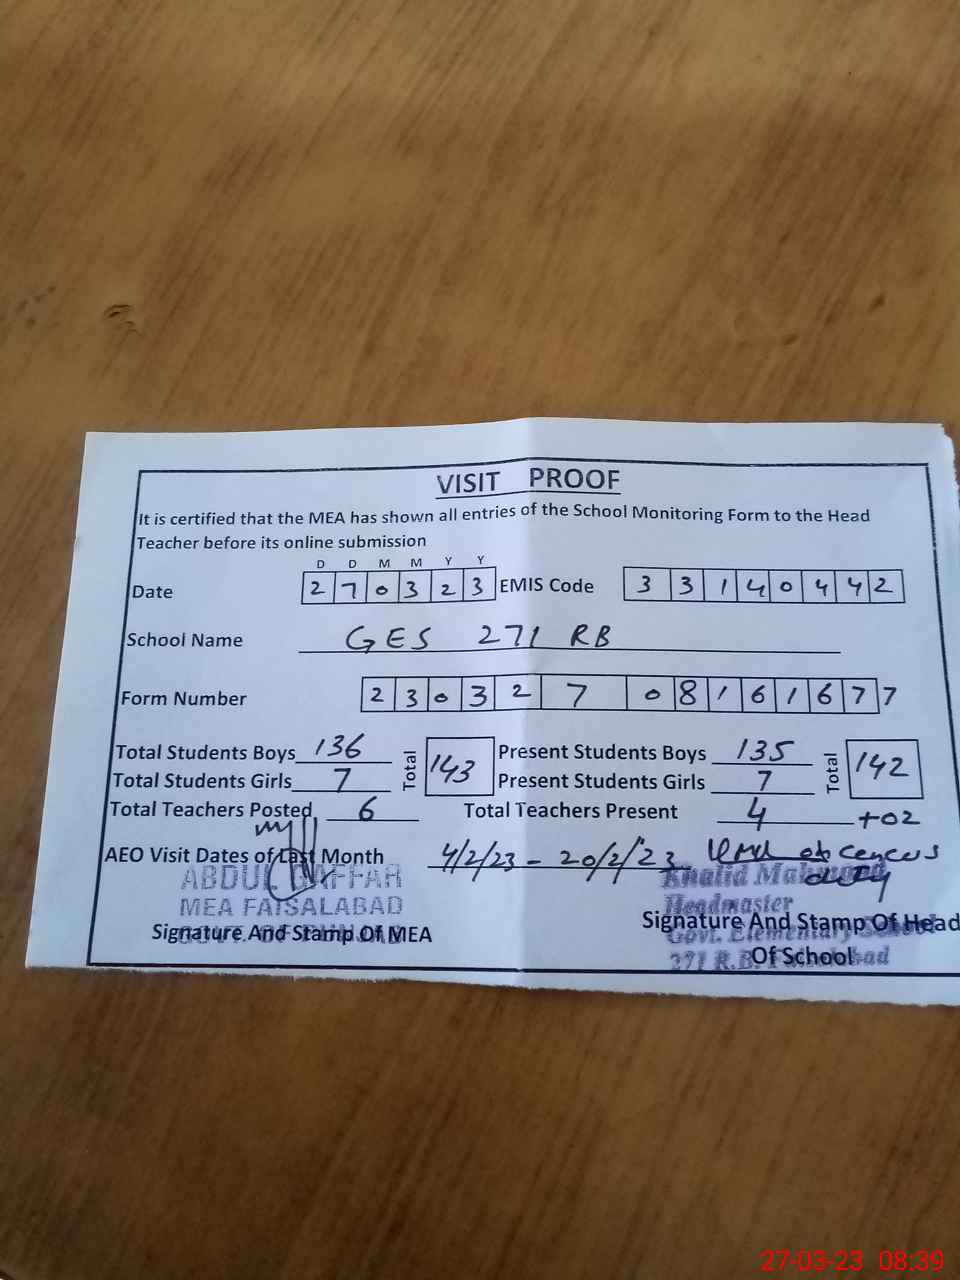 VISIT PROOF
It is certified that the MEA has shown all entries of the School Monitoring Form to the Head
Teacher before its online submission
D D M M Y Y
Date 2 7 0 3 2 3 EMIS Code 3 3 1 4 0 4 4 2
School Name GES 271 RB
Form Number 2 3 0 3 2 7 0 8 1 6 1 6 7 7 7
Total Students Boys 136 Total 143 Present Students Boys 135 Total 142
Total Students Girls 7 Present Students Girls 7
Total Teachers Posted 6 Total Teachers Present 4 +02
AEO Visit Dates of Last Month 4/2/23 - 20/2/23 cencus
duty
ABDUL GAFFAR
MEA FAISALABAD
GOVT. OF PUNJAB
Signature And Stamp Of MEA
Khalid Mahmood
Headmaster
Govt. Elementary School
271 R.B. Faisalabad
Signature And Stamp Of Head
Of School
27-03-23 08:39